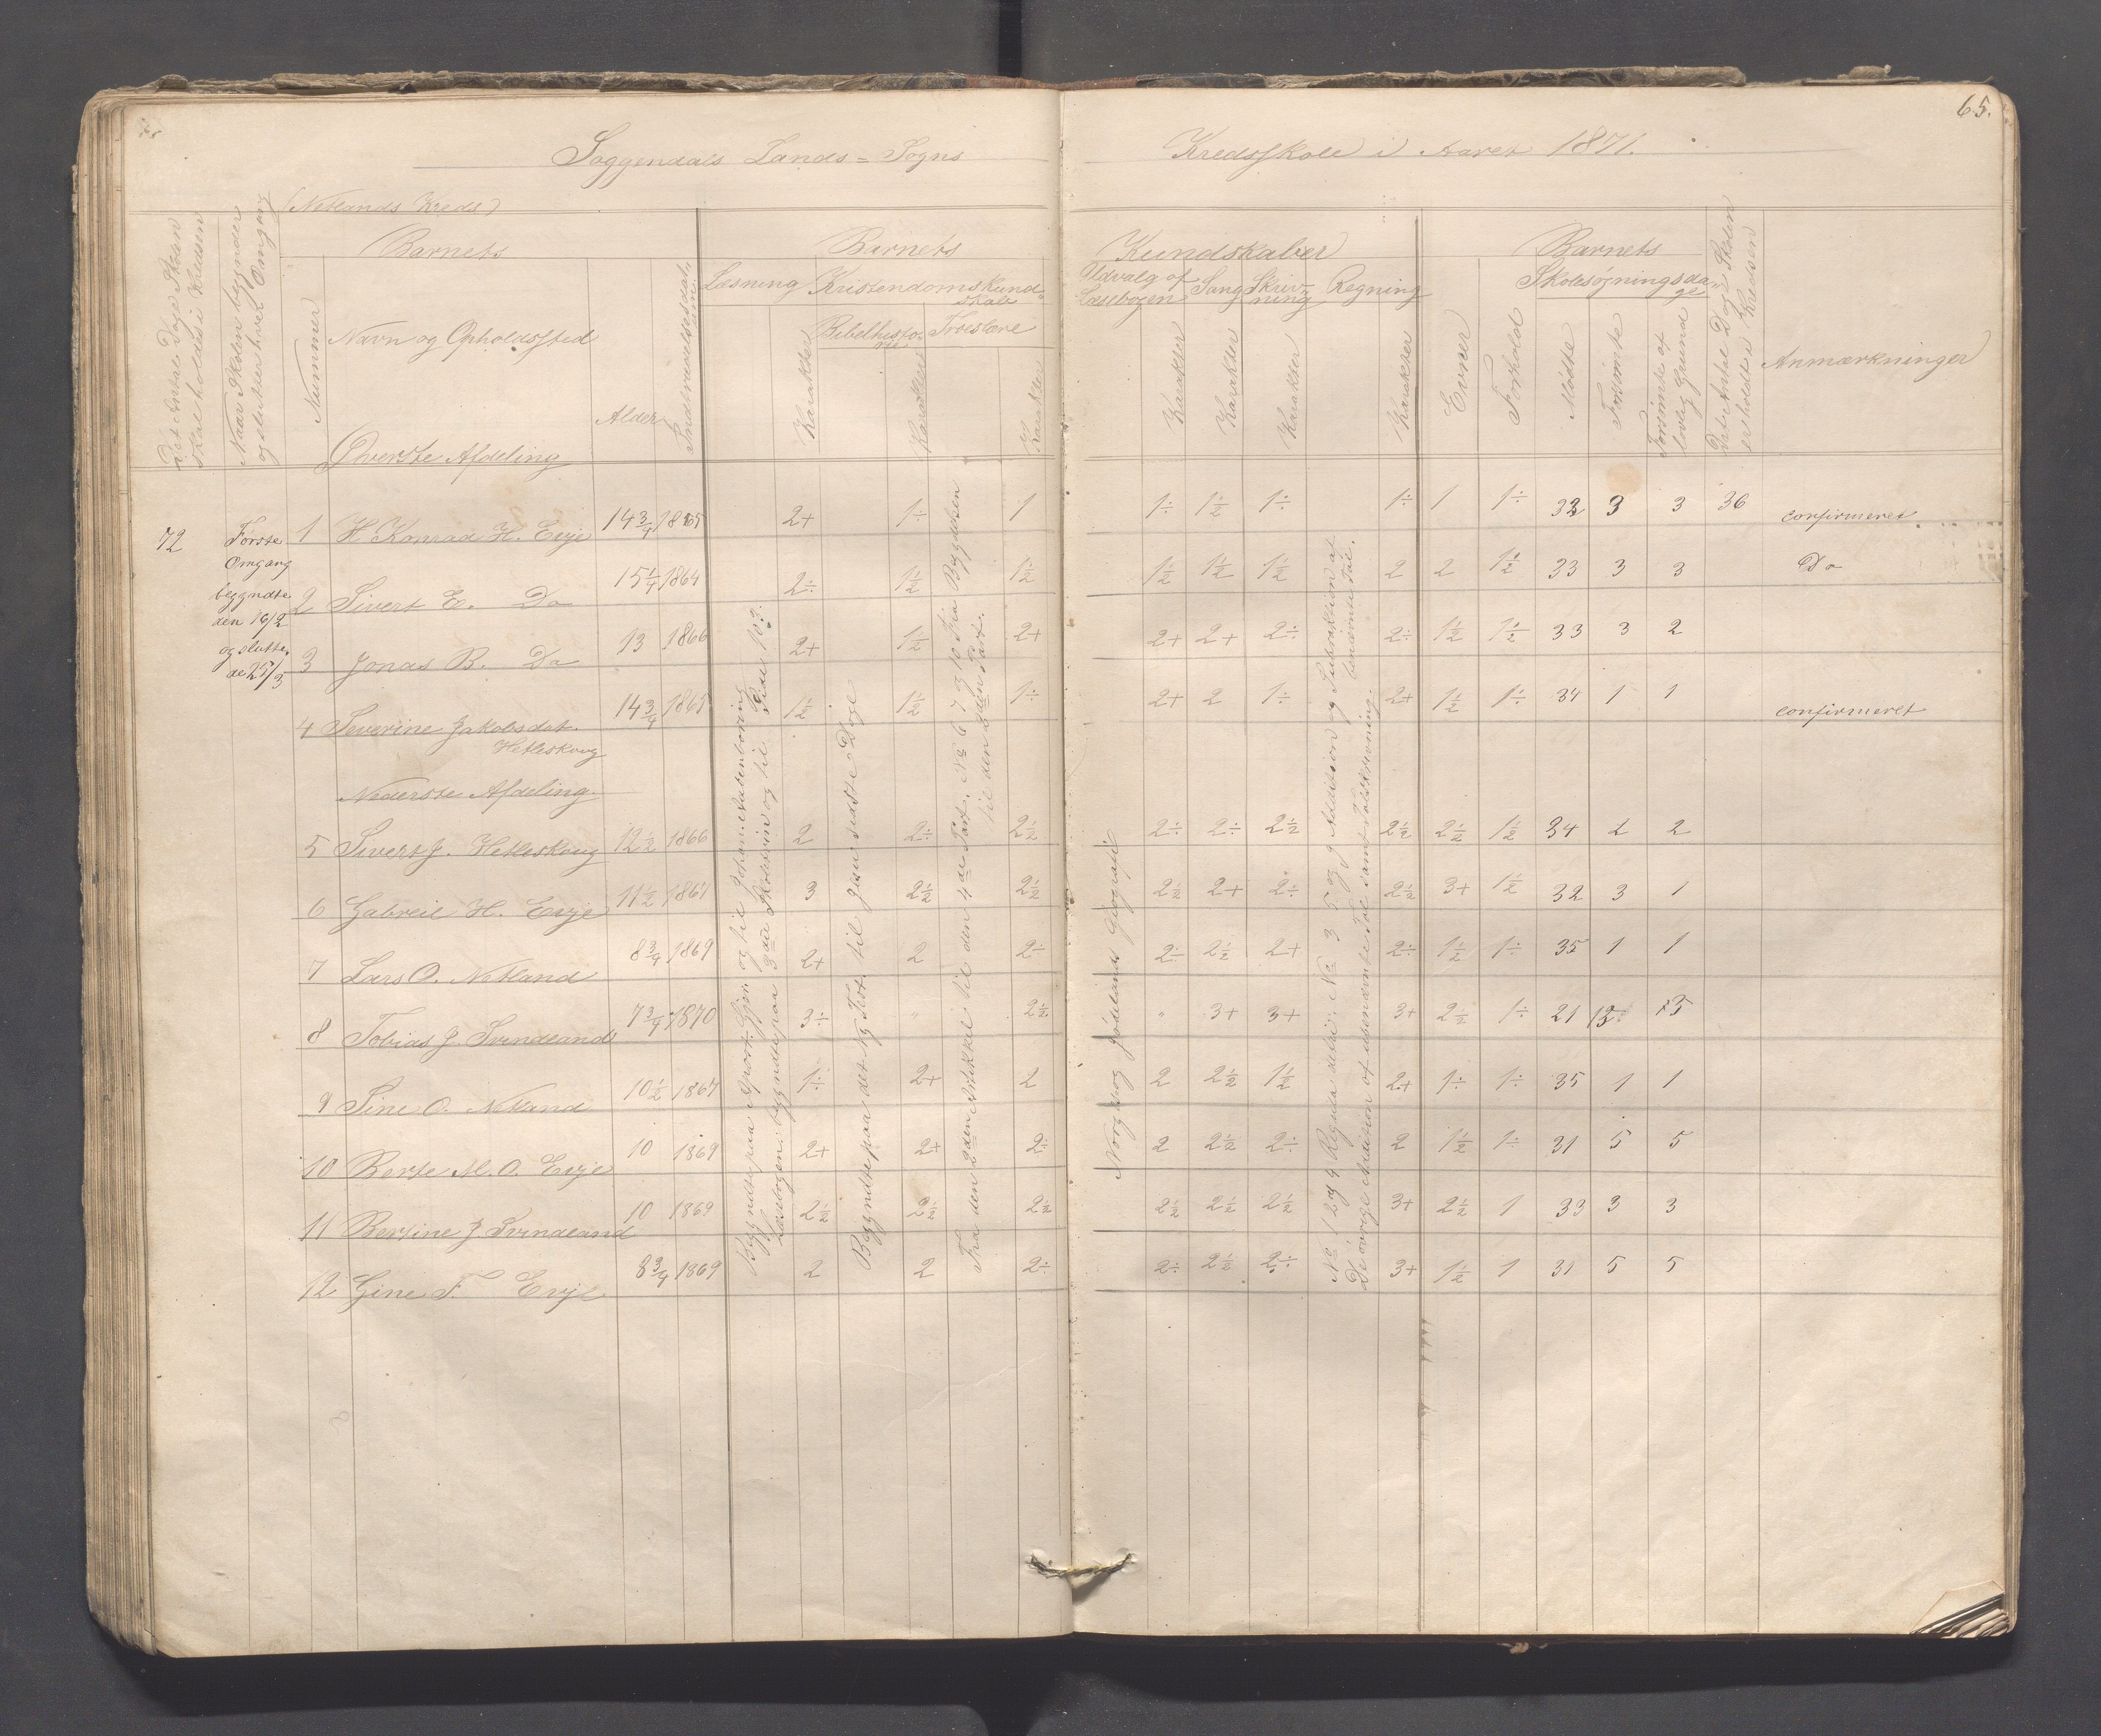 65.
Soggendals Lands=Sogns Kredsskole i Aaret 1871.
(Netlands Kreds)
Det Antal Dage Skolen skal holdes i Kredsen
Naar Skolen begynder og slutter hver Omgang
Barnets
Nummer
Navn og Opholdssted
Alder
Indtrædelsesdatum
Barnets Kundskaber
Læsning
Karakter
Kristendomskundskab
Bibelhistorie
Karakter
Troeslære
Karakter
Udvalg af Læsebogen
Karakter
Sang
Karakter
Skrivning
Karakter
Regning
Karakter
Barnets
Evner
Forhold
Skolesøgningsdage
Mødte
Forsømte
Forsømte af lovlig Grund
Det Antal Dage Skolen er holdt i Kredsen
Anmærkninger
Øverste Afdeling
72
Første
Omgang
begyndte
den 16/2
og slutte.
de 25/3
1 H Konrad H. Evje 14 3/4 1865 2+ 1÷ 1 1÷ 1½ 1÷ 1÷ 1 1÷ 33 3 3 36 confirmeret
2 Sivert E. Do 15 1/4 1864 2÷ 1½ 1½ 1½ 1½ 1½ 2 2 1½ 33 3 3 Do
3 Jonas B. Do 13 1866 2+ 1½ 2+ 2+ 2+ 2÷ 2÷ 1½ 1½ 33 3 2
4 Severine Jakobsdat. Hetleskoug 14 3/4 1865 1½ 1½ 1÷ 2+ 2 1÷ 2+ 1½ 1÷ 34 1 1 confirmeret
Nederste Afdeling
5 Sivert J. Hetleskoug 12½ 1866 2 2÷ 2½ 2÷ 2÷ 2½ 2½ 2½ 1½ 34 2 2
6 Gabreil H. Evje 11½ 1867 3 2½ 2½ 2½ 2+ 2÷ 2½ 3+ 1½ 32 3 1
7 Lars O. Netland 8 3/4 1869 2+ 2 2÷ 2÷ 2½ 2+ 2÷ 1½ 1÷ 35 1 1
8 Tobias J. Svindland 7 3/4 1870 3÷ " 2½ " 3+ 3+ 3+ 2½ 1÷ 21 15 15
9 Sine O. Netland 10½ 1867 1÷ 2+ 2 2 2½ 1½ 2+ 1÷ 1÷ 35 1 1
10 Berte M. O. Evje 10 1869 2+ 2+ 2÷ 2 2½ 2÷ 2 1½ 1÷ 31 5 5
11 Bertine J Svindland 10 1869 2½ 2½ 2½ 2½ 2½ 2½ 3+ 2½ 1 33 3 3
12 Gine F. Evje 8 3/4 1869 2 2 2÷ 2÷ 2½ 2÷ 3+ 1½ 1 31 5 5
Læsebogen begyndte paa 3die
Begyndte paa det ny Test. til Jesu sidste Dage
Fra den 2den Artikkel til den 4de Part. No 6 7 9 10 Fra Begyndelsen
til den 2den Part.
Norges og Jødelands Geografie
No 1 2 og 4 Regula detri; No 3 5 og 9 Addition og Subtraktion af
De øvrige Addition af ubenævnte Tal samt Talskrivning. benævnte Tal.